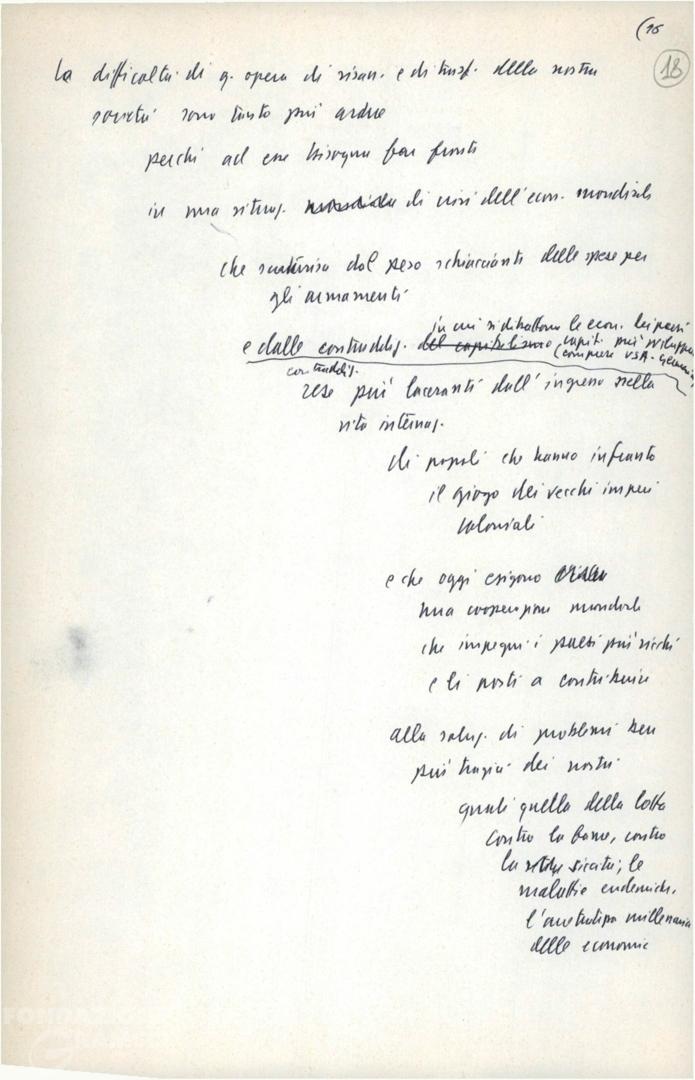 (15
18
la difficoltà di q. opera di risan. e di trasf. della nostra
società sono tanto più ardue
perché ad esse bisogna far fronte
in una situaz. mondiale di crisi dell'econ. mondiale
che scaturisce dal peso schiacciante delle spese per
gli armamenti
in cui si dibattono le econ. dei paesi
e dalle contraddiz. del capitalismo capit. più sviluppa
(compresi USA - Germania
contraddiz.
rese più laceranti dall'ingresso nella
vita internaz.
di popoli che hanno infranto
il giogo dei vecchi imperi
coloniali
e che oggi esigono
una cooperazione mondiale
che impegni i paesi più ricchi
e li porti a contribuire
alla soluz. di problemi ben
più tragici dei nostri
quali quella della lotta
contro la fame, contro
la siccità; le
malattie endemiche,
l'arretratezza millenaria
delle economie
FONDAZIONE
GRAMSCI